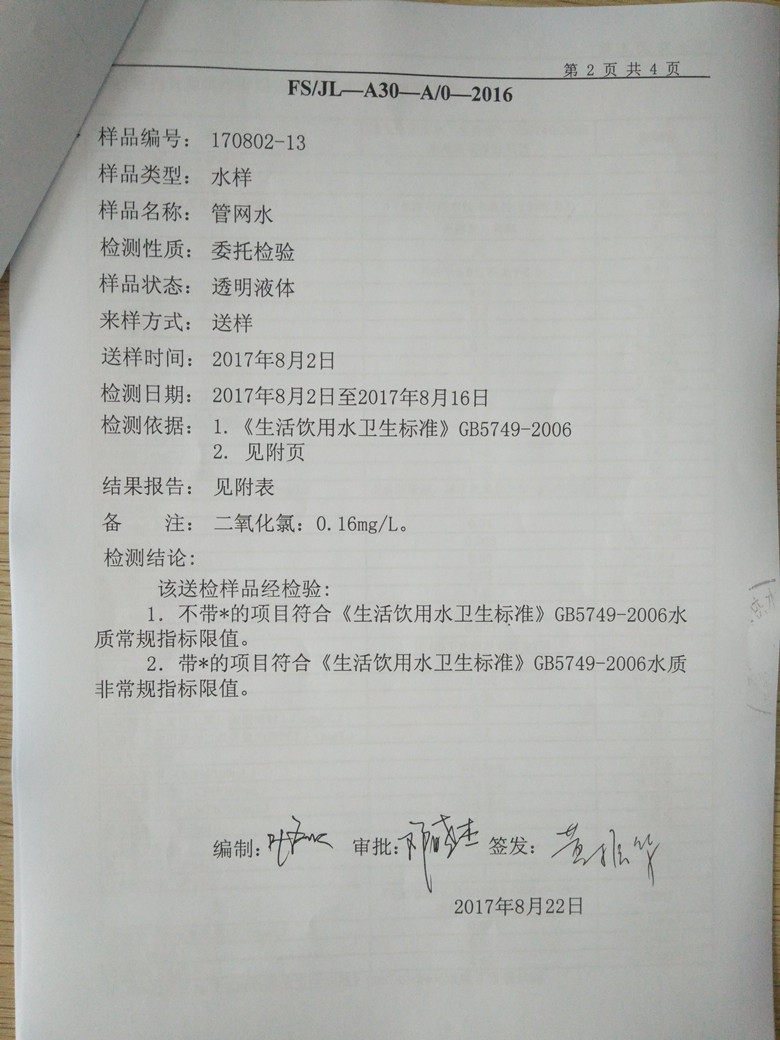 第 2 页 共 4 页
FS/JL—A30—A/0—2016
样品编号： 170802-13
样品类型： 水样
样品名称： 管网水
检测性质： 委托检验
样品状态： 透明液体
来样方式： 送样
送样时间： 2017年8月2日
检测日期： 2017年8月2日至2017年8月16日
检测依据： 1.《生活饮用水卫生标准》GB5749-2006
2. 见附页
结果报告： 见附表
备　　注： 二氧化氯：0.16mg/L。
检测结论：
该送检样品经检验：
1. 不带*的项目符合《生活饮用水卫生标准》GB5749-2006水
质常规指标限值。
2. 带*的项目符合《生活饮用水卫生标准》GB5749-2006水质
非常规指标限值。
编制： 审批： 签发：
2017年8月22日